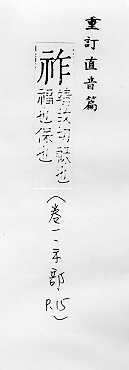 重訂直音篇
祚
靖故切祿也
福也保也
(卷一·示部 P.15)